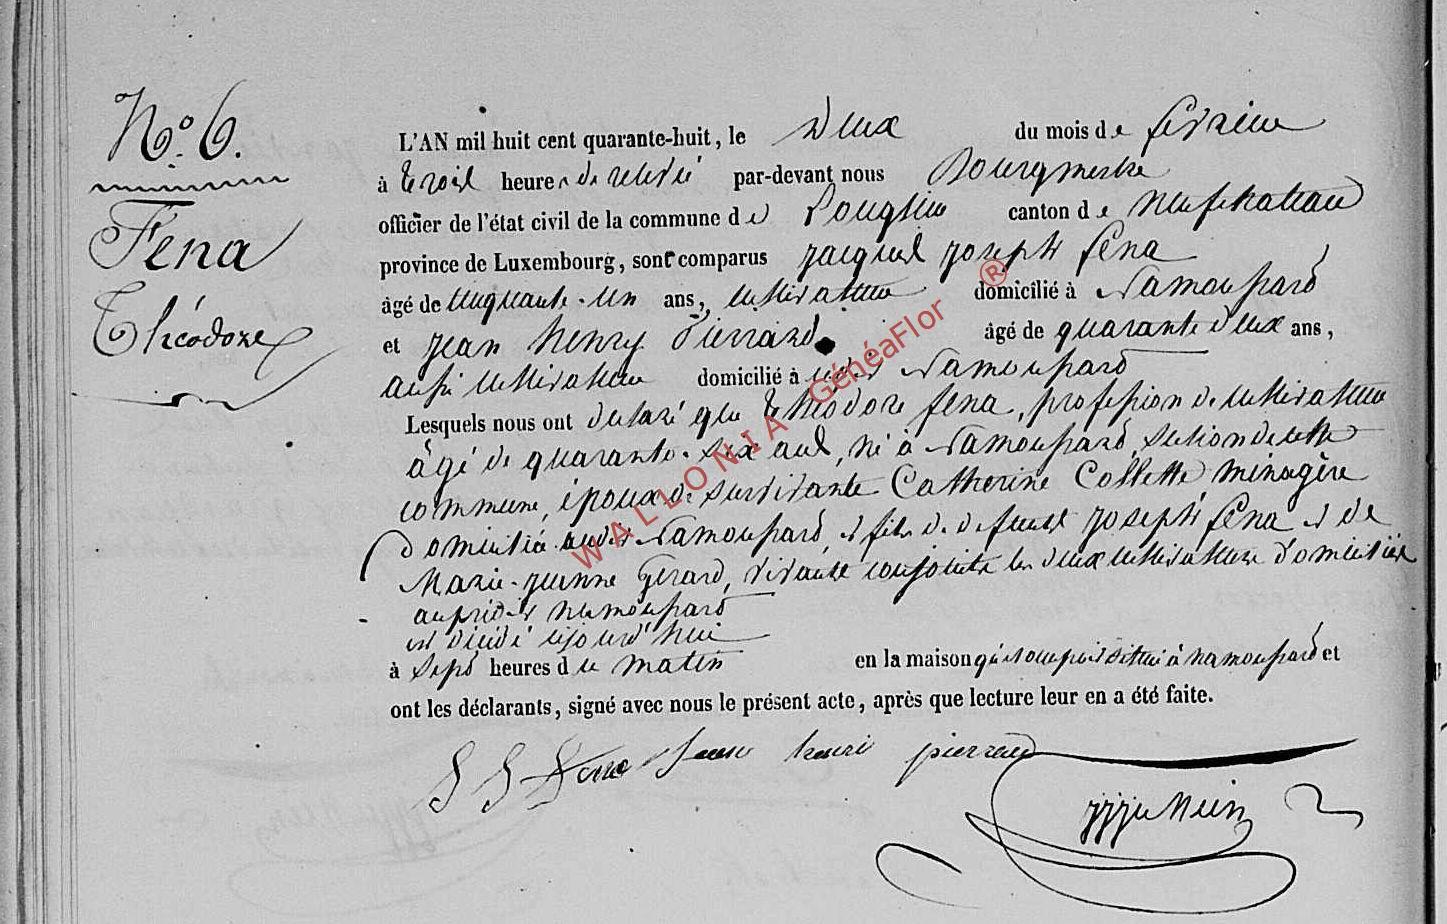 N.º 6.
Fena
Théodore
L'AN mil huit cent quarante-huit, le deux du mois de fevrier
à trois heures de relevée par-devant nous Bourgmestre
officier de l'état civil de la commune de canton de Neufchateau
province de Luxembourg, sont comparus Jacques Joseph Fena
âgé de cinquante-un ans, cultivateur domicilié à Namoussard
et Jean Henry Pierrard âgé de quarante deux ans,
aussi cultivateur domicilié à udit Namoussard
Lesquels nous ont declaré que théodore fena, profession de cultivateur
âgé de quarante-six ans, né à Namoussard, section de cette
commune, époux de survivante Catherine Collette ménagère
domiciliée audit Namoussard, et fils de defunt Joseph Fena et de
Marie-Jeanne Gerard, vivants conjoints les deux cultivateurs domiciliés
auprédit Namoussard
est décédé cejourd'hui
à sept heures du matin en la maison située à Namoussard et
ont les déclarants, signé avec nous le présent acte, après que lecture leur en a été faite.
J J Fena Jean henri pierrard
WALLONIA GénéaFlor ®